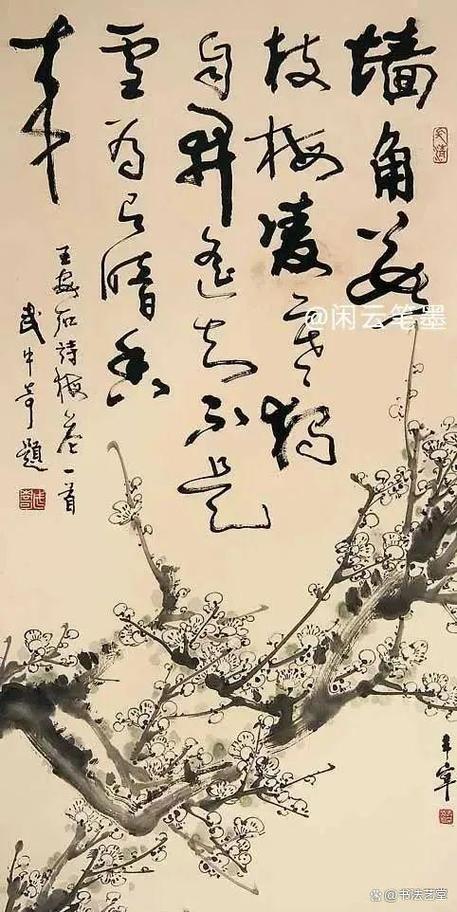 墙角数
枝梅凌寒独
自开遥知不是
雪为有暗香
来
王安石詩梅花一首
武中奇題
@闲云笔墨
书法艺堂